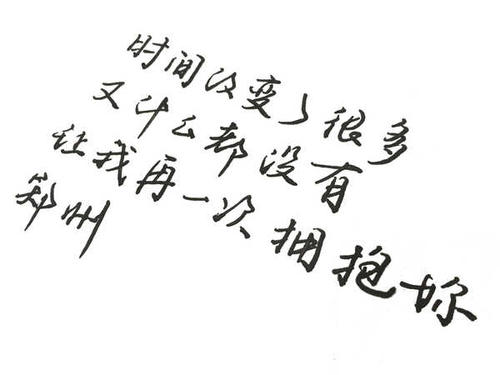 时间改变了很多
又什么都没有
让我再一次拥抱妳
郑州